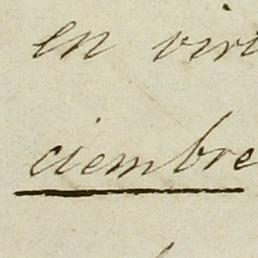 en viri
ciembre